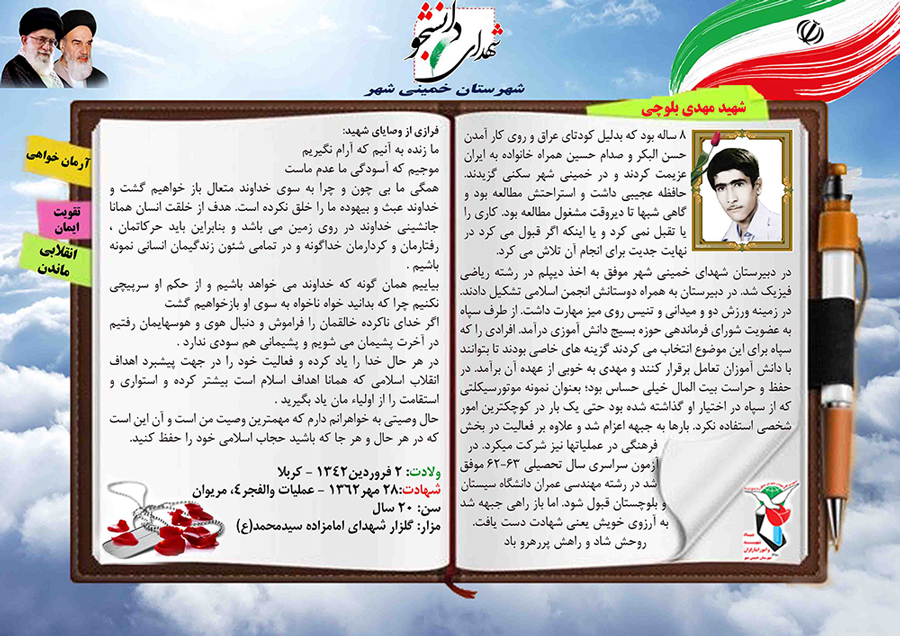 شهدای دانشجو
شهرستان خمینی شهر
شهید مهدی بلوچی
۸ ساله بود که بدلیل کودتای عراق و روی کار آمدن
حسن البکر و صدام حسین همراه خانواده به ایران
عزیمت کردند و در خمینی شهر سکنی گزیدند.
حافظه عجیبی داشت و استراحتش مطالعه بود و
گاهی شبها تا دیروقت مشغول مطالعه بود. کاری را
یا تقبل نمی کرد و یا اینکه اگر قبول می کرد در
نهایت جدیت برای انجام آن تلاش می کرد.
در دبیرستان شهدای خمینی شهر موفق به اخذ دیپلم در رشته ریاضی
فیزیک شد. در دبیرستان به همراه دوستانش انجمن اسلامی تشکیل دادند.
در زمینه ورزش دو و میدانی و تنیس روی میز مهارت داشت. از طرف سپاه
به عضویت شورای فرماندهی حوزه بسیج دانش آموزی درآمد. افرادی را که
سپاه برای این موضوع انتخاب می کردند گزینه های خاصی بودند تا بتوانند
با دانش آموزان تعامل برقرار کنند و مهدی به خوبی از عهده آن برآمد. در
حفظ و حراست بیت المال خیلی حساس بود؛ بعنوان نمونه موتورسیکلتی
که از سپاه در اختیار او گذاشته شده بود حتی یک بار در کوچکترین امور
شخصی استفاده نکرد. بارها به جبهه اعزام شد و علاوه بر فعالیت در بخش
فرهنگی در عملیاتها نیز شرکت میکرد. در
آزمون سراسری سال تحصیلی ۶۳-۶۲ موفق
شد در رشته مهندسی عمران دانشگاه سیستان
و بلوچستان قبول شود. اما باز راهی جبهه شد
و به آرزوی خویش یعنی شهادت دست یافت.
روحش شاد و راهش پررهرو باد
فرازی از وصایای شهید:
ما زنده به آنیم که آرام نگیریم
موجیم که آسودگی ما عدم ماست
همگی ما بی چون و چرا به سوی خداوند متعال باز خواهیم گشت و
خداوند عبث و بیهوده ما را خلق نکرده است. هدف از خلقت انسان همانا
جانشینی خداوند در روی زمین می باشد و بنابراین باید حرکاتمان ،
رفتارمان و کردارمان خداگونه و در تمامی شئون زندگیمان انسانی نمونه
باشیم .
بیاییم همان گونه که خداوند می خواهد باشیم و از حکم او سرپیچی
نکنیم چرا که بدانید خواه ناخواه به سوی او بازخواهیم گشت
اگر خدای ناکرده خالقمان را فراموش و دنبال هوی و هوسهایمان رفتیم
در آخرت پشیمان می شویم و پشیمانی هم سودی ندارد .
در هر حال خدا را یاد کرده و فعالیت خود را در جهت پیشبرد اهداف
انقلاب اسلامی که همانا اهداف اسلام است بیشتر کرده و استواری و
استقامت را از اولیاء مان یاد بگیرید .
حال وصیتی به خواهرانم دارم که مهمترین وصیت من است و آن این است
که در هر حال و هر جا که باشید حجاب اسلامی خود را حفظ کنید.
ولادت: ۲ فروردین۱۳۴۲ - کربلا
شهادت:۲۸ مهر۱۳۶۲ - عملیات والفجر۴، مریوان
سن: ۲۰ سال
مزار: گلزار شهدای امامزاده سیدمحمد(ع)
آرمان خواهی
تقویت
ایمان
انقلابی
ماندن